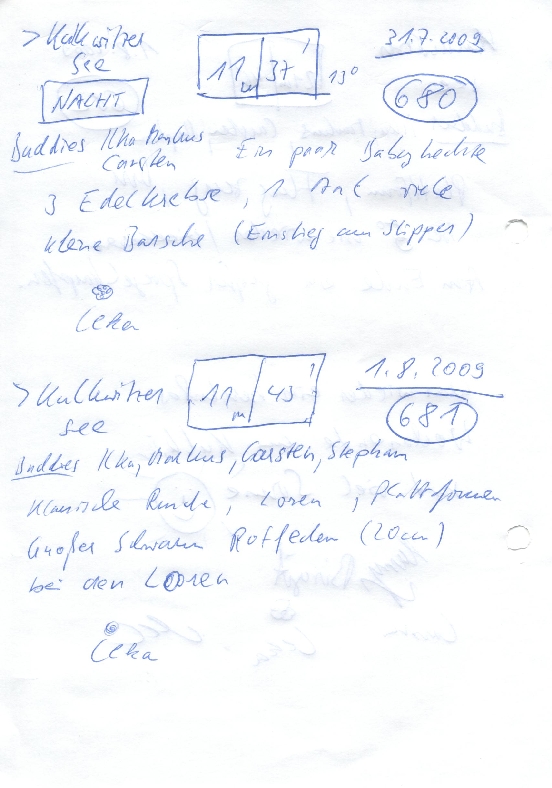 > Kulkwitzer
See
11 m 37 ' 13°
31.7.2009
NACHT
680
Buddies Ilka Markus
Carsten Ein paar Babyhechte
3 Edelkrebse, 1 Aal viele
kleine Barsche (Einstieg am Slipper)
> Kulkwitzer
See
11 m 43 '
1.8.2009
681
Buddies Ilka, Markus, Carsten, Stephan
Klassische Runde, Loren, Plattformen
Großer Schwarm Rotfedern (20cm)
bei den Looren